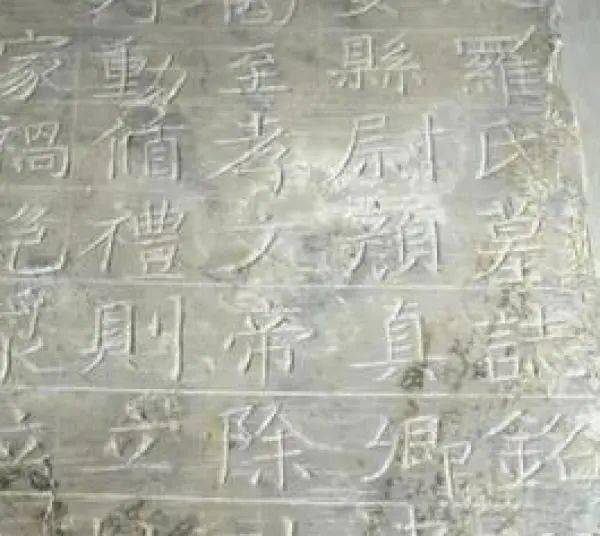 羅氏墓誌銘
縣尉顏真卿
至孝文帝除
動循禮則立
家禍